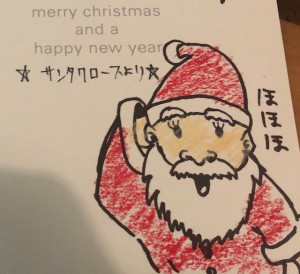 merry christmas
and a
happy new year
☆ サンタクロースより☆
ほほほ